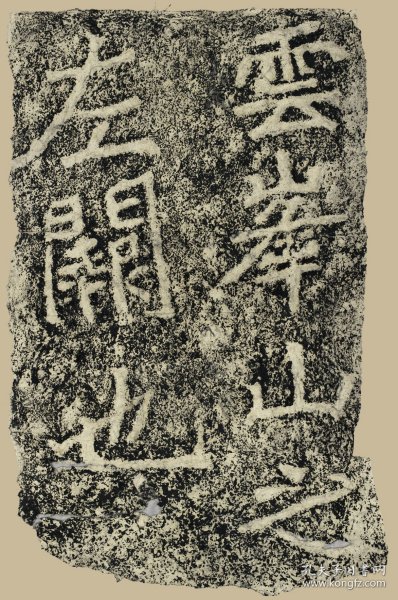 雲峯山之
左闕也
孔夫子旧书网
www.kongfz.com